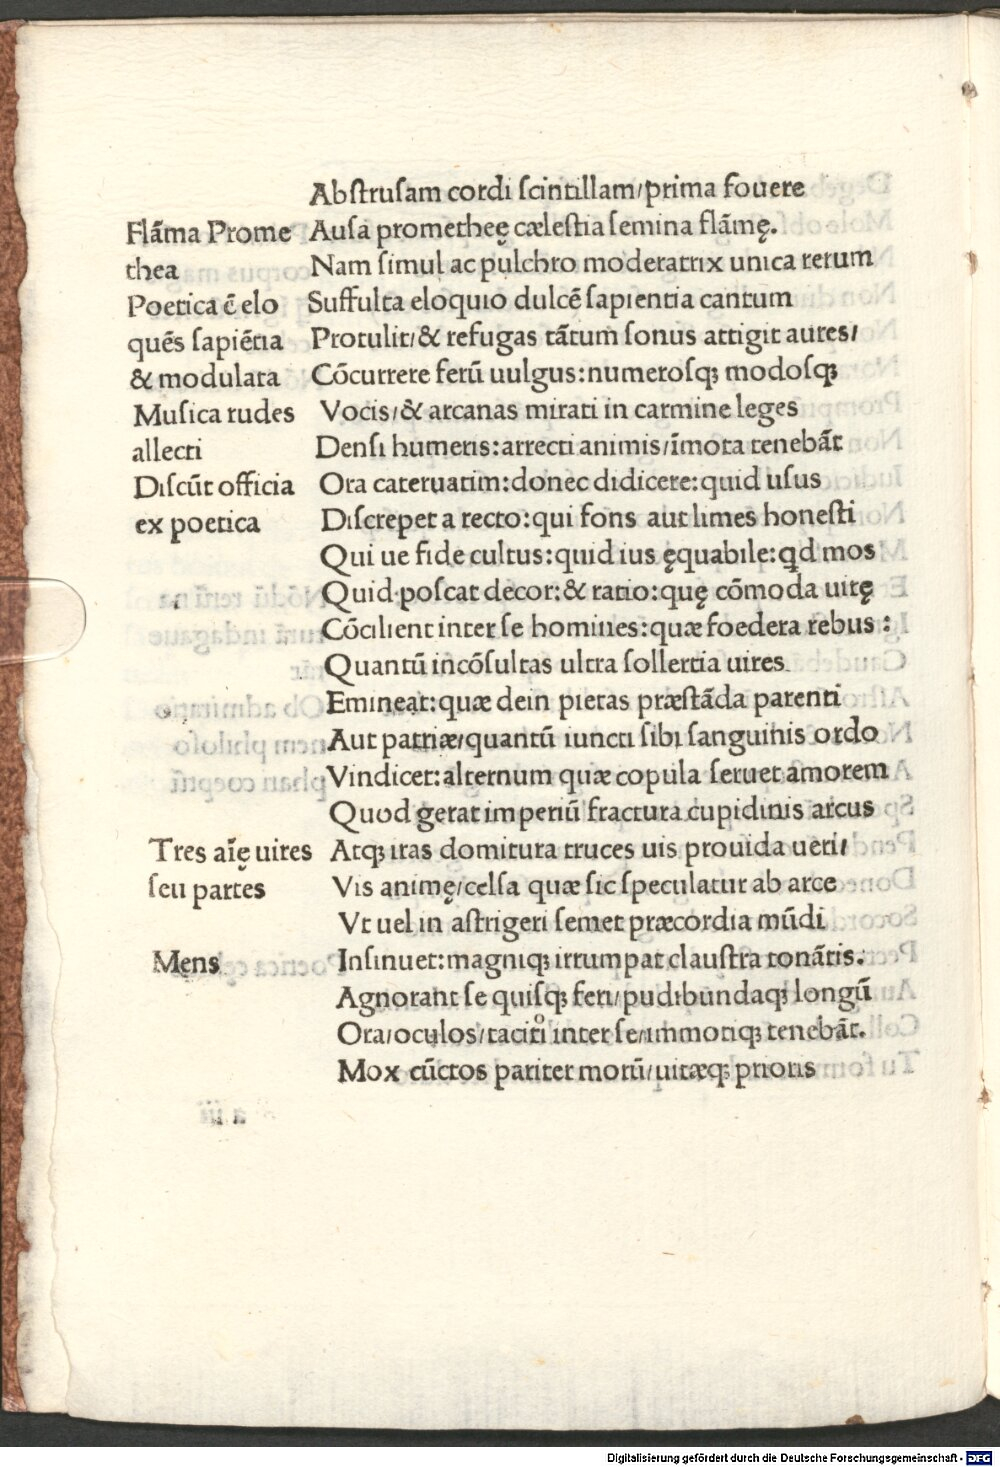 Abstrusam cordi scintillam/prima fouere
Flãma Prome
Ausa prometheę cælestia semina flãmę.
thea
Nam simul ac pulchro moderatrix unica rerum
Poetica ẽ elo
Suffulta eloquio dulcẽ sapientia cantum
quẽs sapiẽtia
Protulit/& refugas tãtum sonus attigit aures/
& modulata
Cõcurrere ferũ uulgus:numerosq; modosq;
Musica rudes
Vocis/& arcanas mirati in carmine leges
allecti
Densi humeris:arrecti animis/ĩmota tenebãt
Discũt officia
Ora cateruatim:donec didicere:quid usus
ex poetica
Discrepet a recto:qui fons aut limes honesti
Qui ue fide cultus:quid ius ęquabile:qd mos
Quid poscat decor:& ratio:quę cõmoda uitę
Cõcilient inter se homines:quæ foedera rebus :
Quantũ incõsultas ultra sollertia uires
Emineat:quæ dein pietas præstãda parenti
Aut patriæ/quantũ iuncti sibi sanguinis ordo
Vindicet:alternum quæ copula seruet amorem
Quod gerat imperiũ fractura cupidinis arcus
Tres aĩę uires
Atq; iras domitura truces uis prouida ueri/
seu partes
Vis animę/celsa quæ sic speculatur ab arce
Vt uel in astrigeri semet præcordia mũdi
Mens
Insinuet:magniq; irrumpat claustra tonãtis.
Agnorant se quisq; feri/pudibundaq; longũ
Ora/oculos/taciti inter se/immotiq; tenebãt.
Mox cũctos pariter morũ/uitæq; prioris
Digitalisierung gefördert durch die Deutsche Forschungsgemeinschaft - DFG